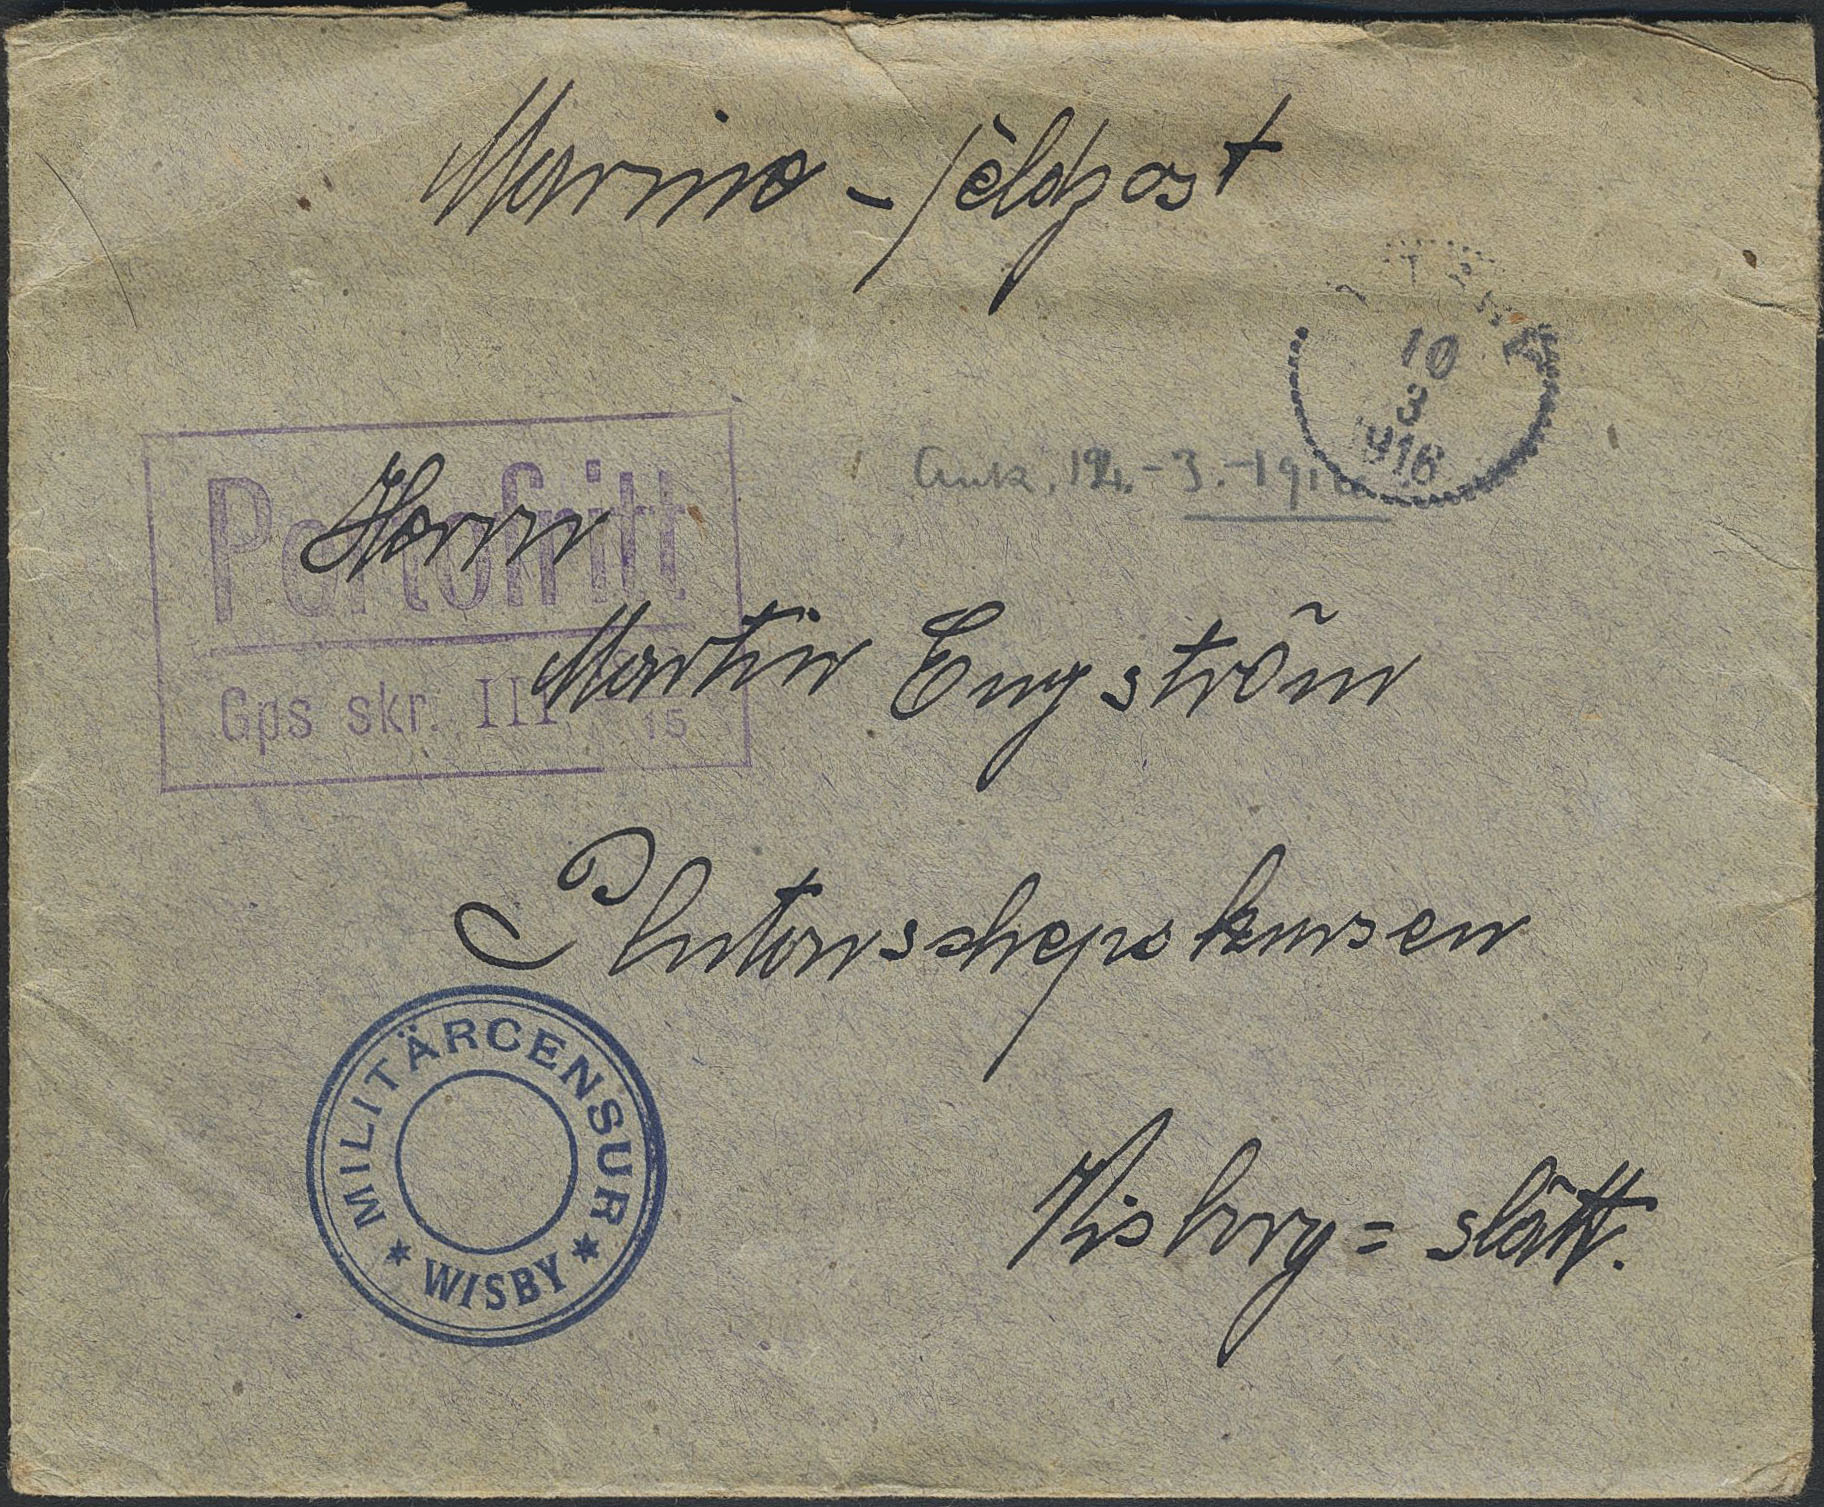 Marine-feldpost
10
3
1916
Ank. 12.-3.-1916
Portofritt
Gps skr. III 15
Herrn
Martin Engström
Plutonschepskursen
Visborg= slätt.
MILITÄRCENSUR
* WISBY *